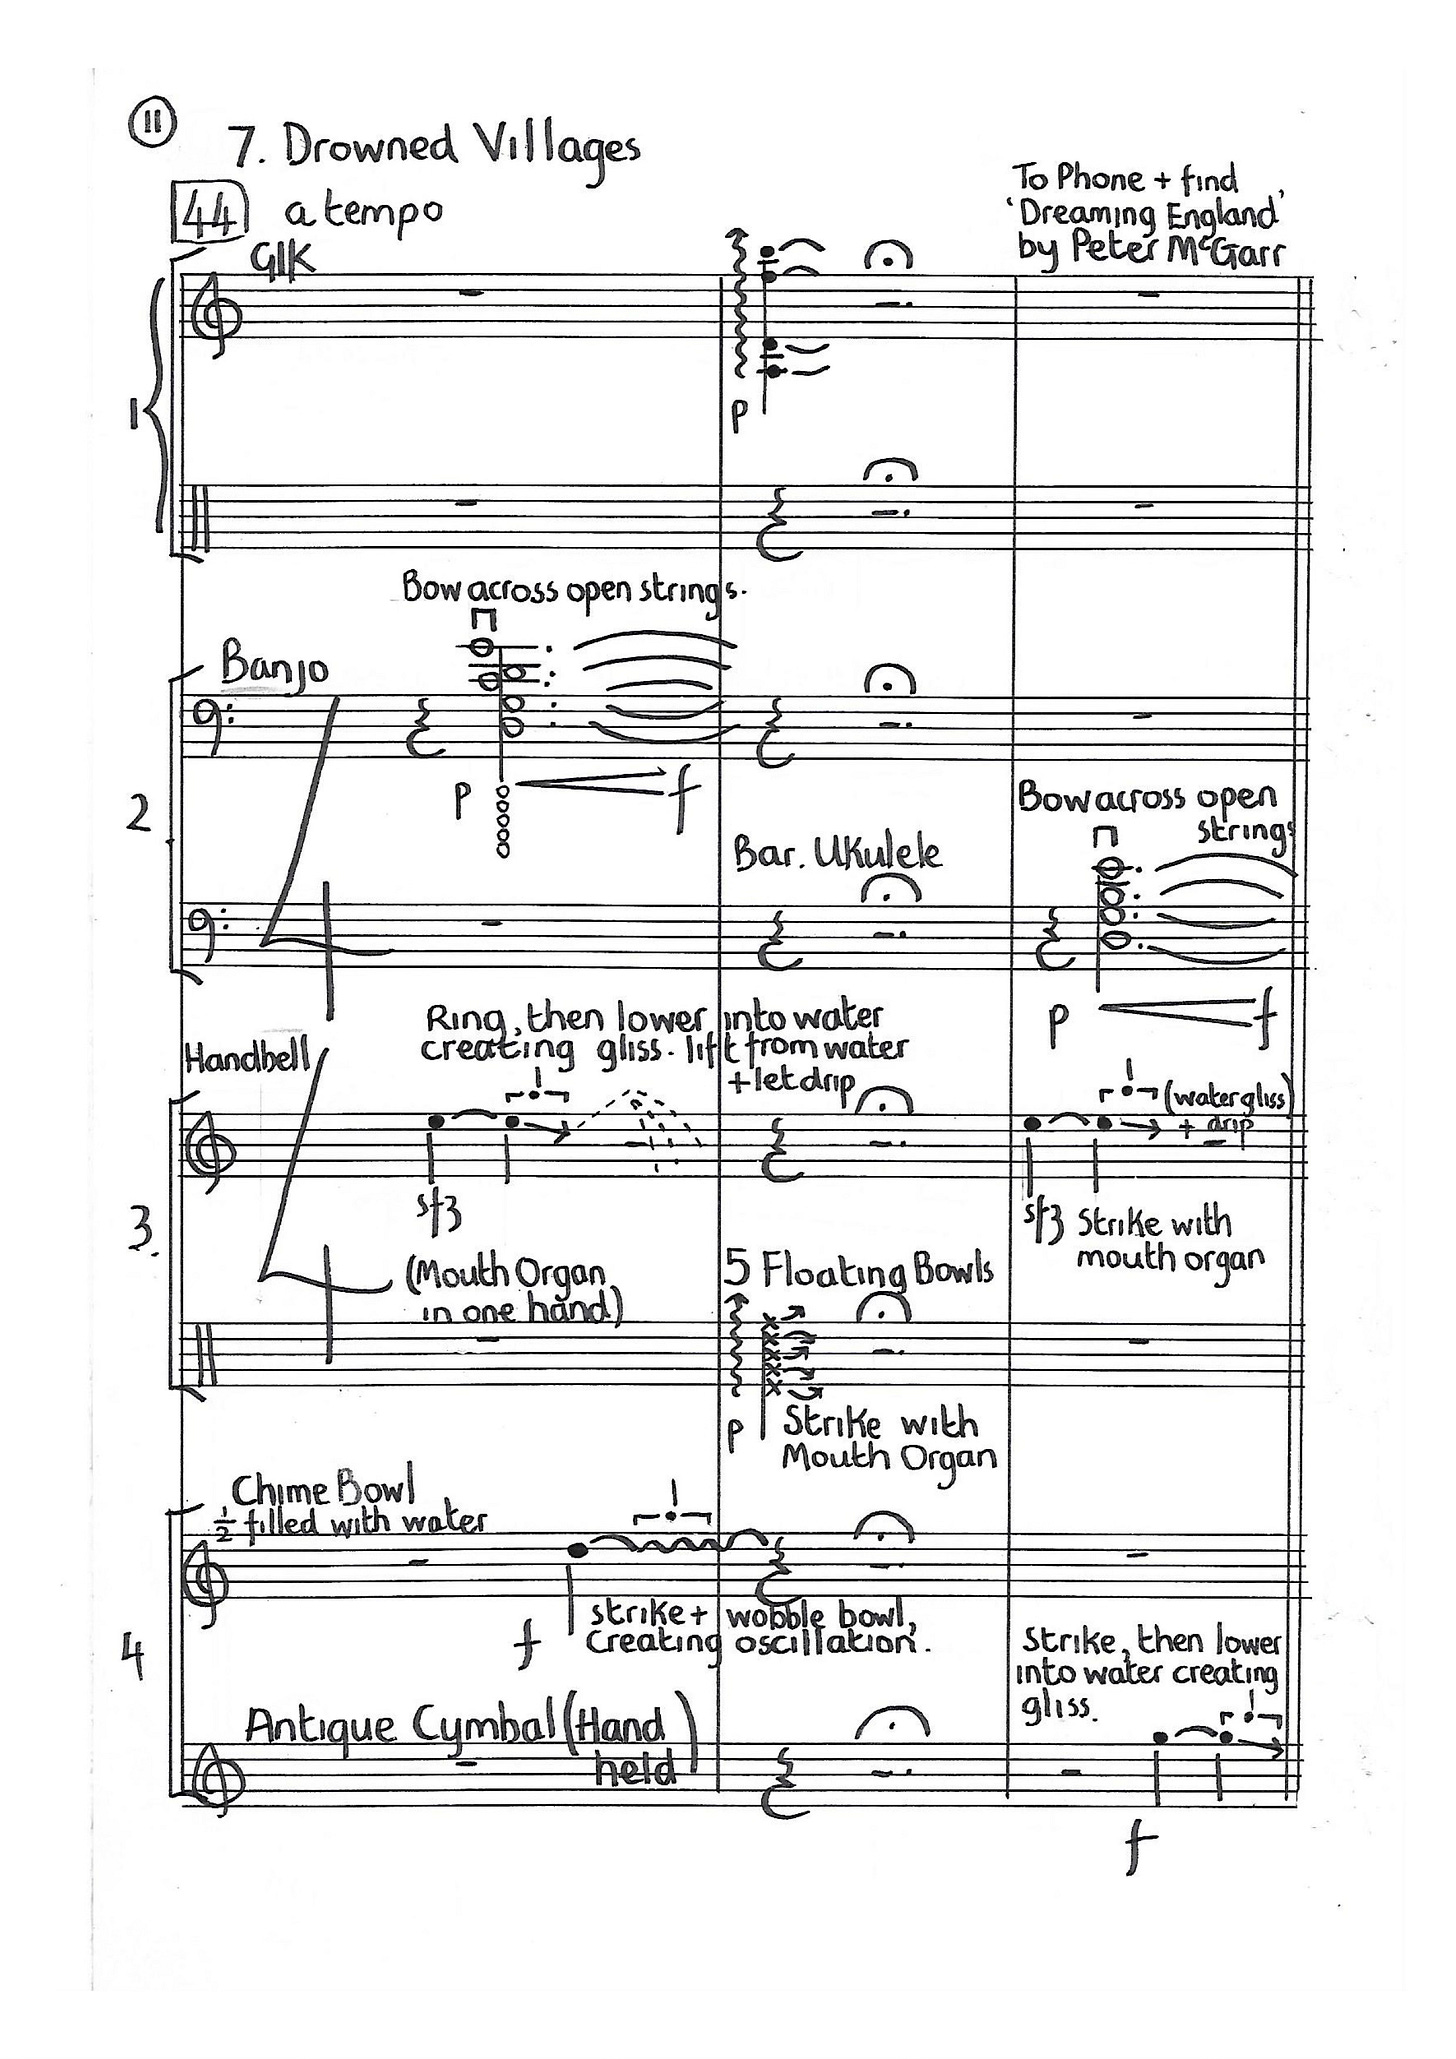 11
7. Drowned Villages
44 a tempo
To Phone + find
'Dreaming England'
by Peter McGarr
Glk
1
p
Bow across open strings.
Banjo
4
p f
2
Bar. Ukulele
Bow across open
strings
p f
Ring, then lower into water
creating gliss. lift from water
+ let drip
Handbell
4
(water gliss)
+ drip
sfz
sfz Strike with
mouth organ
3.
(Mouth Organ
in one hand)
5 Floating Bowls
p Strike with
Mouth Organ
Chime Bowl
½ filled with water
f
strike + wobble bowl,
creating oscillation.
4
Strike, then lower
into water creating
gliss.
Antique Cymbal (Hand
held)
f